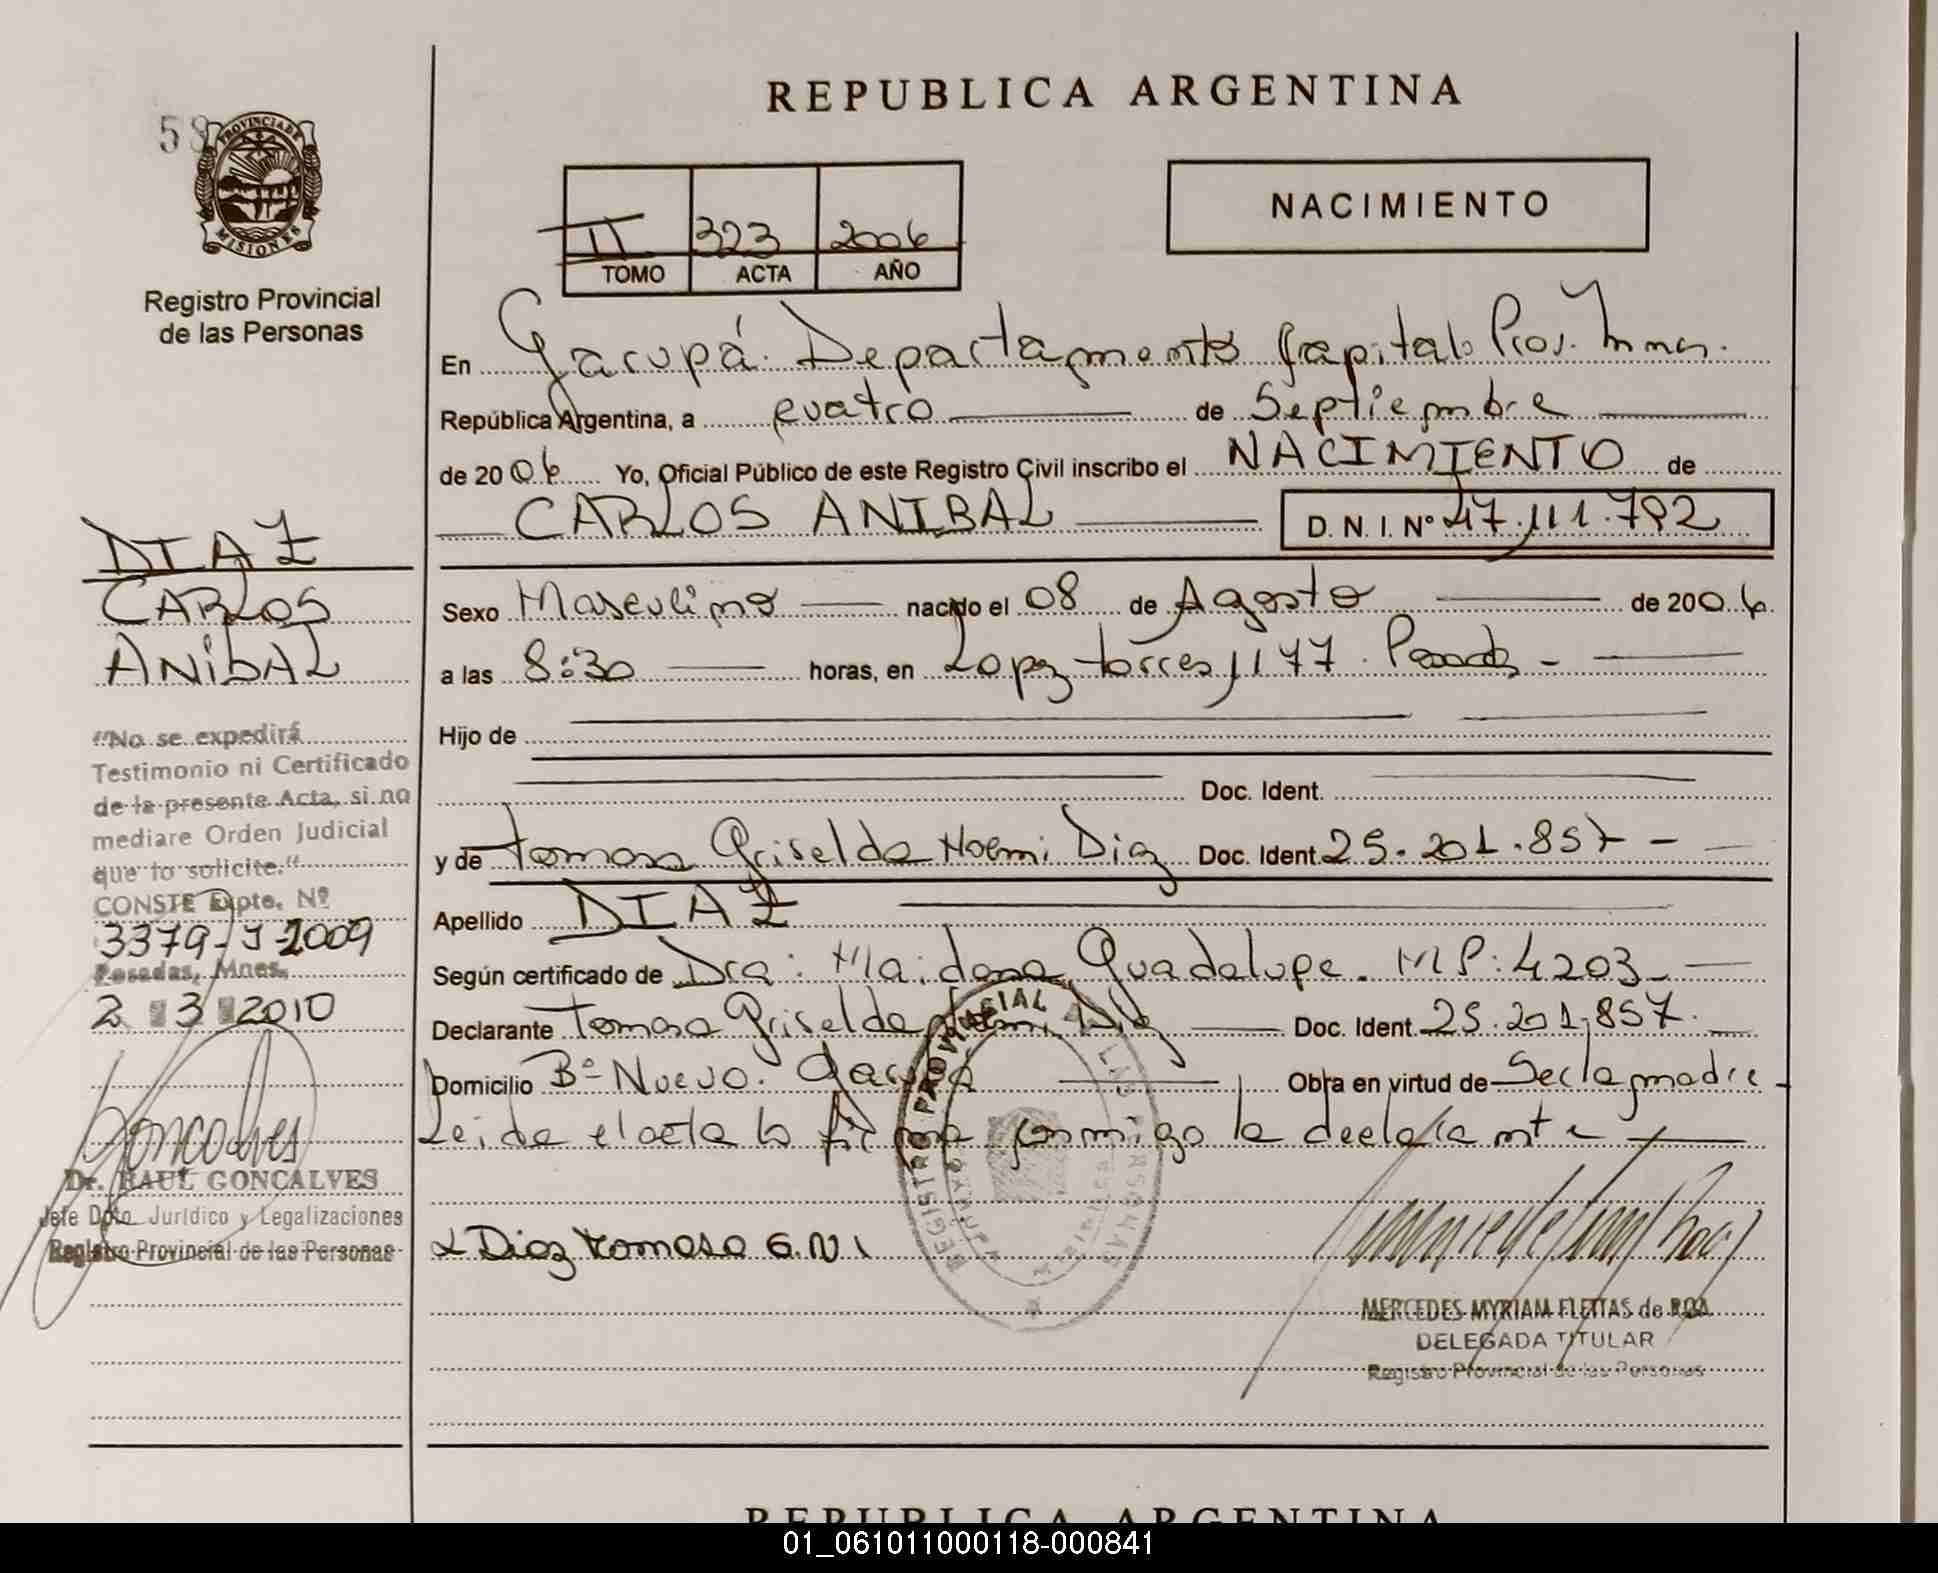 REPUBLICA ARGENTINA
58
PROVINCIA DE
MISIONES
Registro Provincial
de las Personas
NACIMIENTO
II 323 2006
TOMO ACTA AÑO
En Garupá. Departamento Capital Prov. Mnes.
República Argentina, a cuatro de Septiembre
de 2006 Yo, Oficial Público de este Registro Civil inscribo el NACIMIENTO de
CARLOS ANIBAL D. N. I. N° 47.111.792
Sexo Masculino nacido el 08 de Agosto de 2006.
a las 8:30 horas, en Lopez torres 1177. Posadas -
Hijo de
Doc. Ident.
y de Tomasa Griselda Noemi Diaz Doc. Ident. 25.201.857 -
Apellido DIAZ
Según certificado de Dra: Maidana Guadalupe. MP: 4203 -
Declarante Tomasa Griselda Noemi Diaz Doc. Ident. 25.201.857.
Domicilio B° Nuevo. Garupá Obra en virtud de Ser la madre
Leida el acta la firma conmigo la declarante
Diaz Tomasa G.N.
REGISTRO PROVINCIAL DE LAS PERSONAS
MERCEDES MYRIAM FLEITAS de ROA
DELEGADA TITULAR
Registro Provincial de las Personas
DIAZ
CARLOS
ANIBAL
"No se expedirá
Testimonio ni Certificado
de la presente Acta, si no
mediare Orden Judicial
que lo solicite."
CONSTE Expte. Nº
3379-J-2009
Posadas, Mnes.
2 3 2010
Goncalves
Dr. RAUL GONCALVES
Jefe Dpto. Jurídico y Legalizaciones
Registro Provincial de las Personas
REPUBLICA ARGENTINA
01_061011000118-000841